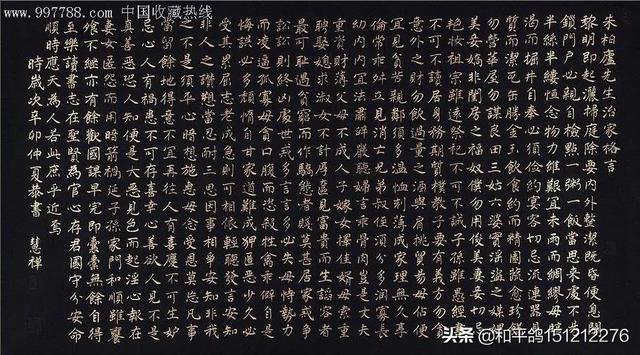 www.997788.com 中国收藏热线
朱柏廬先生治家格言
黎明即起灑掃庭除要内外整潔既昏便息關
鎖門户必親自檢點一粥一飯當思來處不易
半絲半縷恒念物力維艱宜未雨而綢繆毋臨
渴而掘井自奉必須儉約宴客切忌流連器具
質而潔瓦缶勝金玉飲食約而精園蔬愈珍饈
勿營華屋勿謀良田三姑六婆實淫盜之媒婢
美妾嬌非閨房之福奴僕勿用俊美妻妾切忌
艷妝祖宗雖遠祭祀不可不誠子孫雖愚經書
不可不讀居身務期質樸教子要有義方毋貪
意外之財勿飲過量之酒與肩挑貿易毋佔便
宜見貧苦親鄰須多溫恤刻薄成家理無久享
倫常乖舛立見消亡兄弟叔侄須分多潤寡長
幼内外宜法肅辭嚴聽婦言乖骨肉豈是丈夫
重資財薄父母不成人子嫁女擇佳婿毋索重
聘娶媳求淑女不計厚奩見富貴而生諂容者
最可恥遇貧窮而作驕態者賤莫甚居家戒爭
訟訟則終凶處世戒多言言多必失毋恃勢力
而凌逼孤寡毋貪口腹而恣殺牲禽乖僻自是
悔誤必多頹惰自甘家道難成狎暱惡少久必
受其累屈志老成急則可相依輕聽發言安知
非人之譖愬當忍耐三思因事相爭安知非我
之不是須平心暗想施惠毋念受恩莫忘凡事
當留餘地得意不宜再往人有喜慶不可生妒
忌心人有禍患不可存喜幸心善欲人見不是
真善惡恐人知便是大惡見色而起淫心報在
妻女匿怨而用暗箭禍延子孫家門和順雖饔
飧不繼亦有餘歡國課早完即囊橐無餘自得
至樂讀書志在聖賢為官心存君國守分安命
順時應天為人若此庶乎近焉
時歲次辛卯仲夏恭書 慧禅
头条 @和平鸽151212276